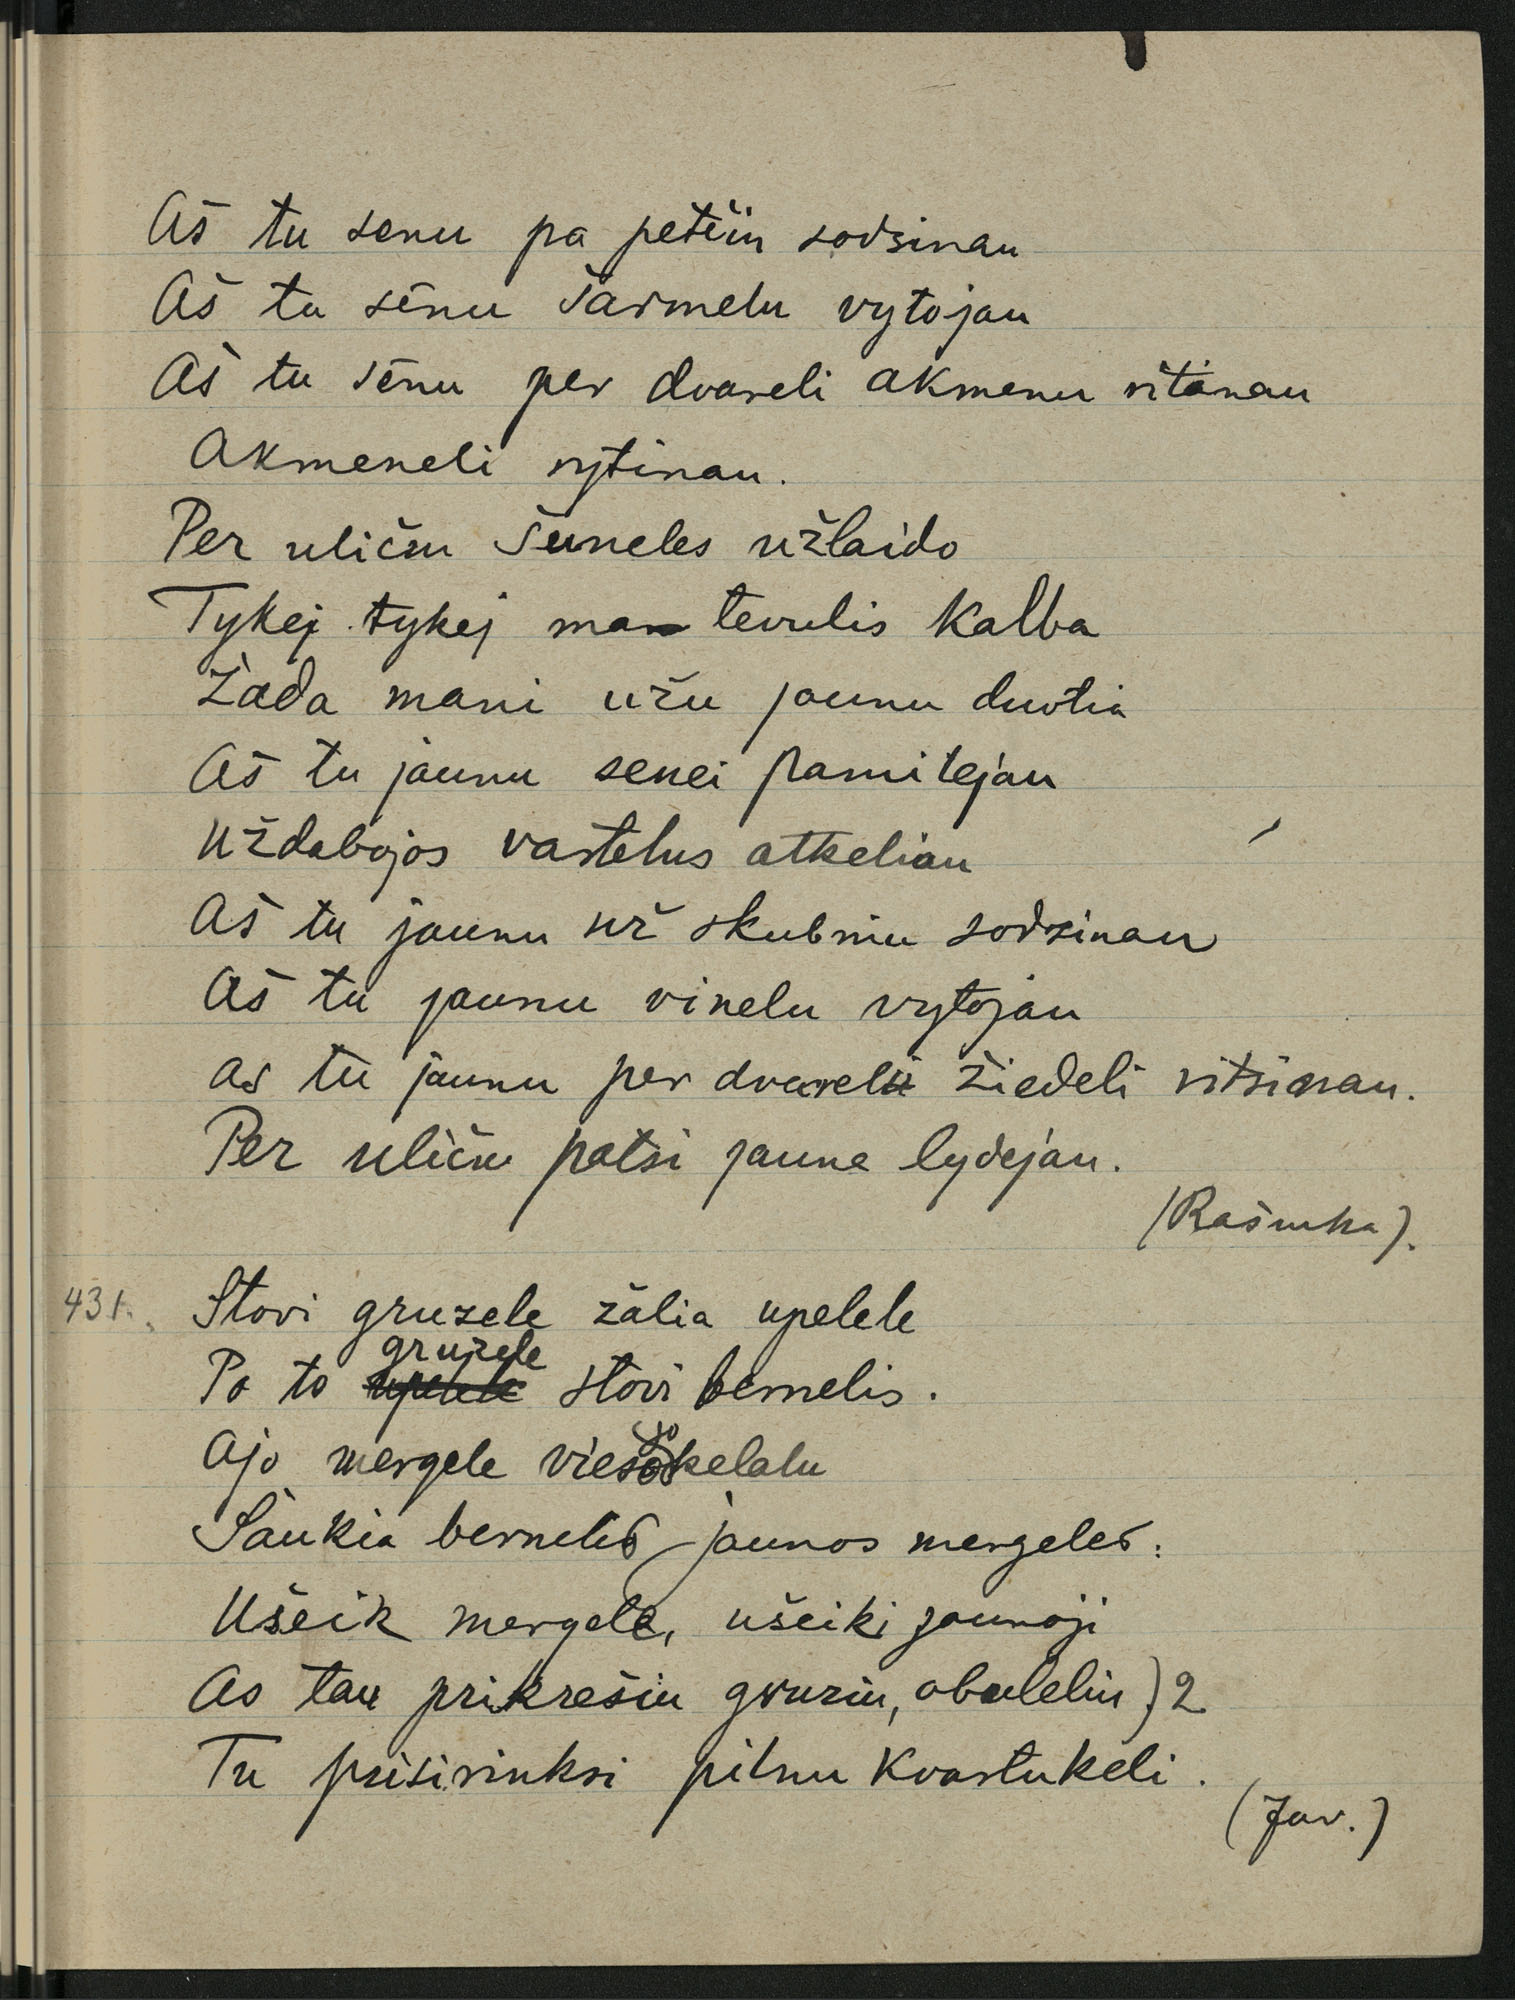 Aš tu senu pa petčiu sodzinau
Aš tu sēnu šarmelu vytojau
Aš tu sēnu per dvareli akmenu ritinau
Akmeneli rytinau.
Per uličiu šuneles užlaido
Tykej tykej man tevulis kalba
Žada mani užu jaunu duotia
Aš tu jaunu senei pamilejau
Uždabojos vartelus atkeliau
Aš tu jaunu už skubniu sodzinau
Aš tu jaunu vinelu vytojau
as tu jaunu per dvareli žiedeli ritsinau.
Per uličiu patsi jauna lydejau.
(Rašinka).
431. Stovi gruzele žalia upelele
Po to gružele stovi bernelis.
Ajo mergele viešo kelalu
Šaukia bernelis jaunos mergeles:
Ušeik mergele, ušeiki jaunoji
As tau prikrešiu gruziu, obuleliu } 2
Tu prisirinksi pilnu kvartukeli.
(Jav.)